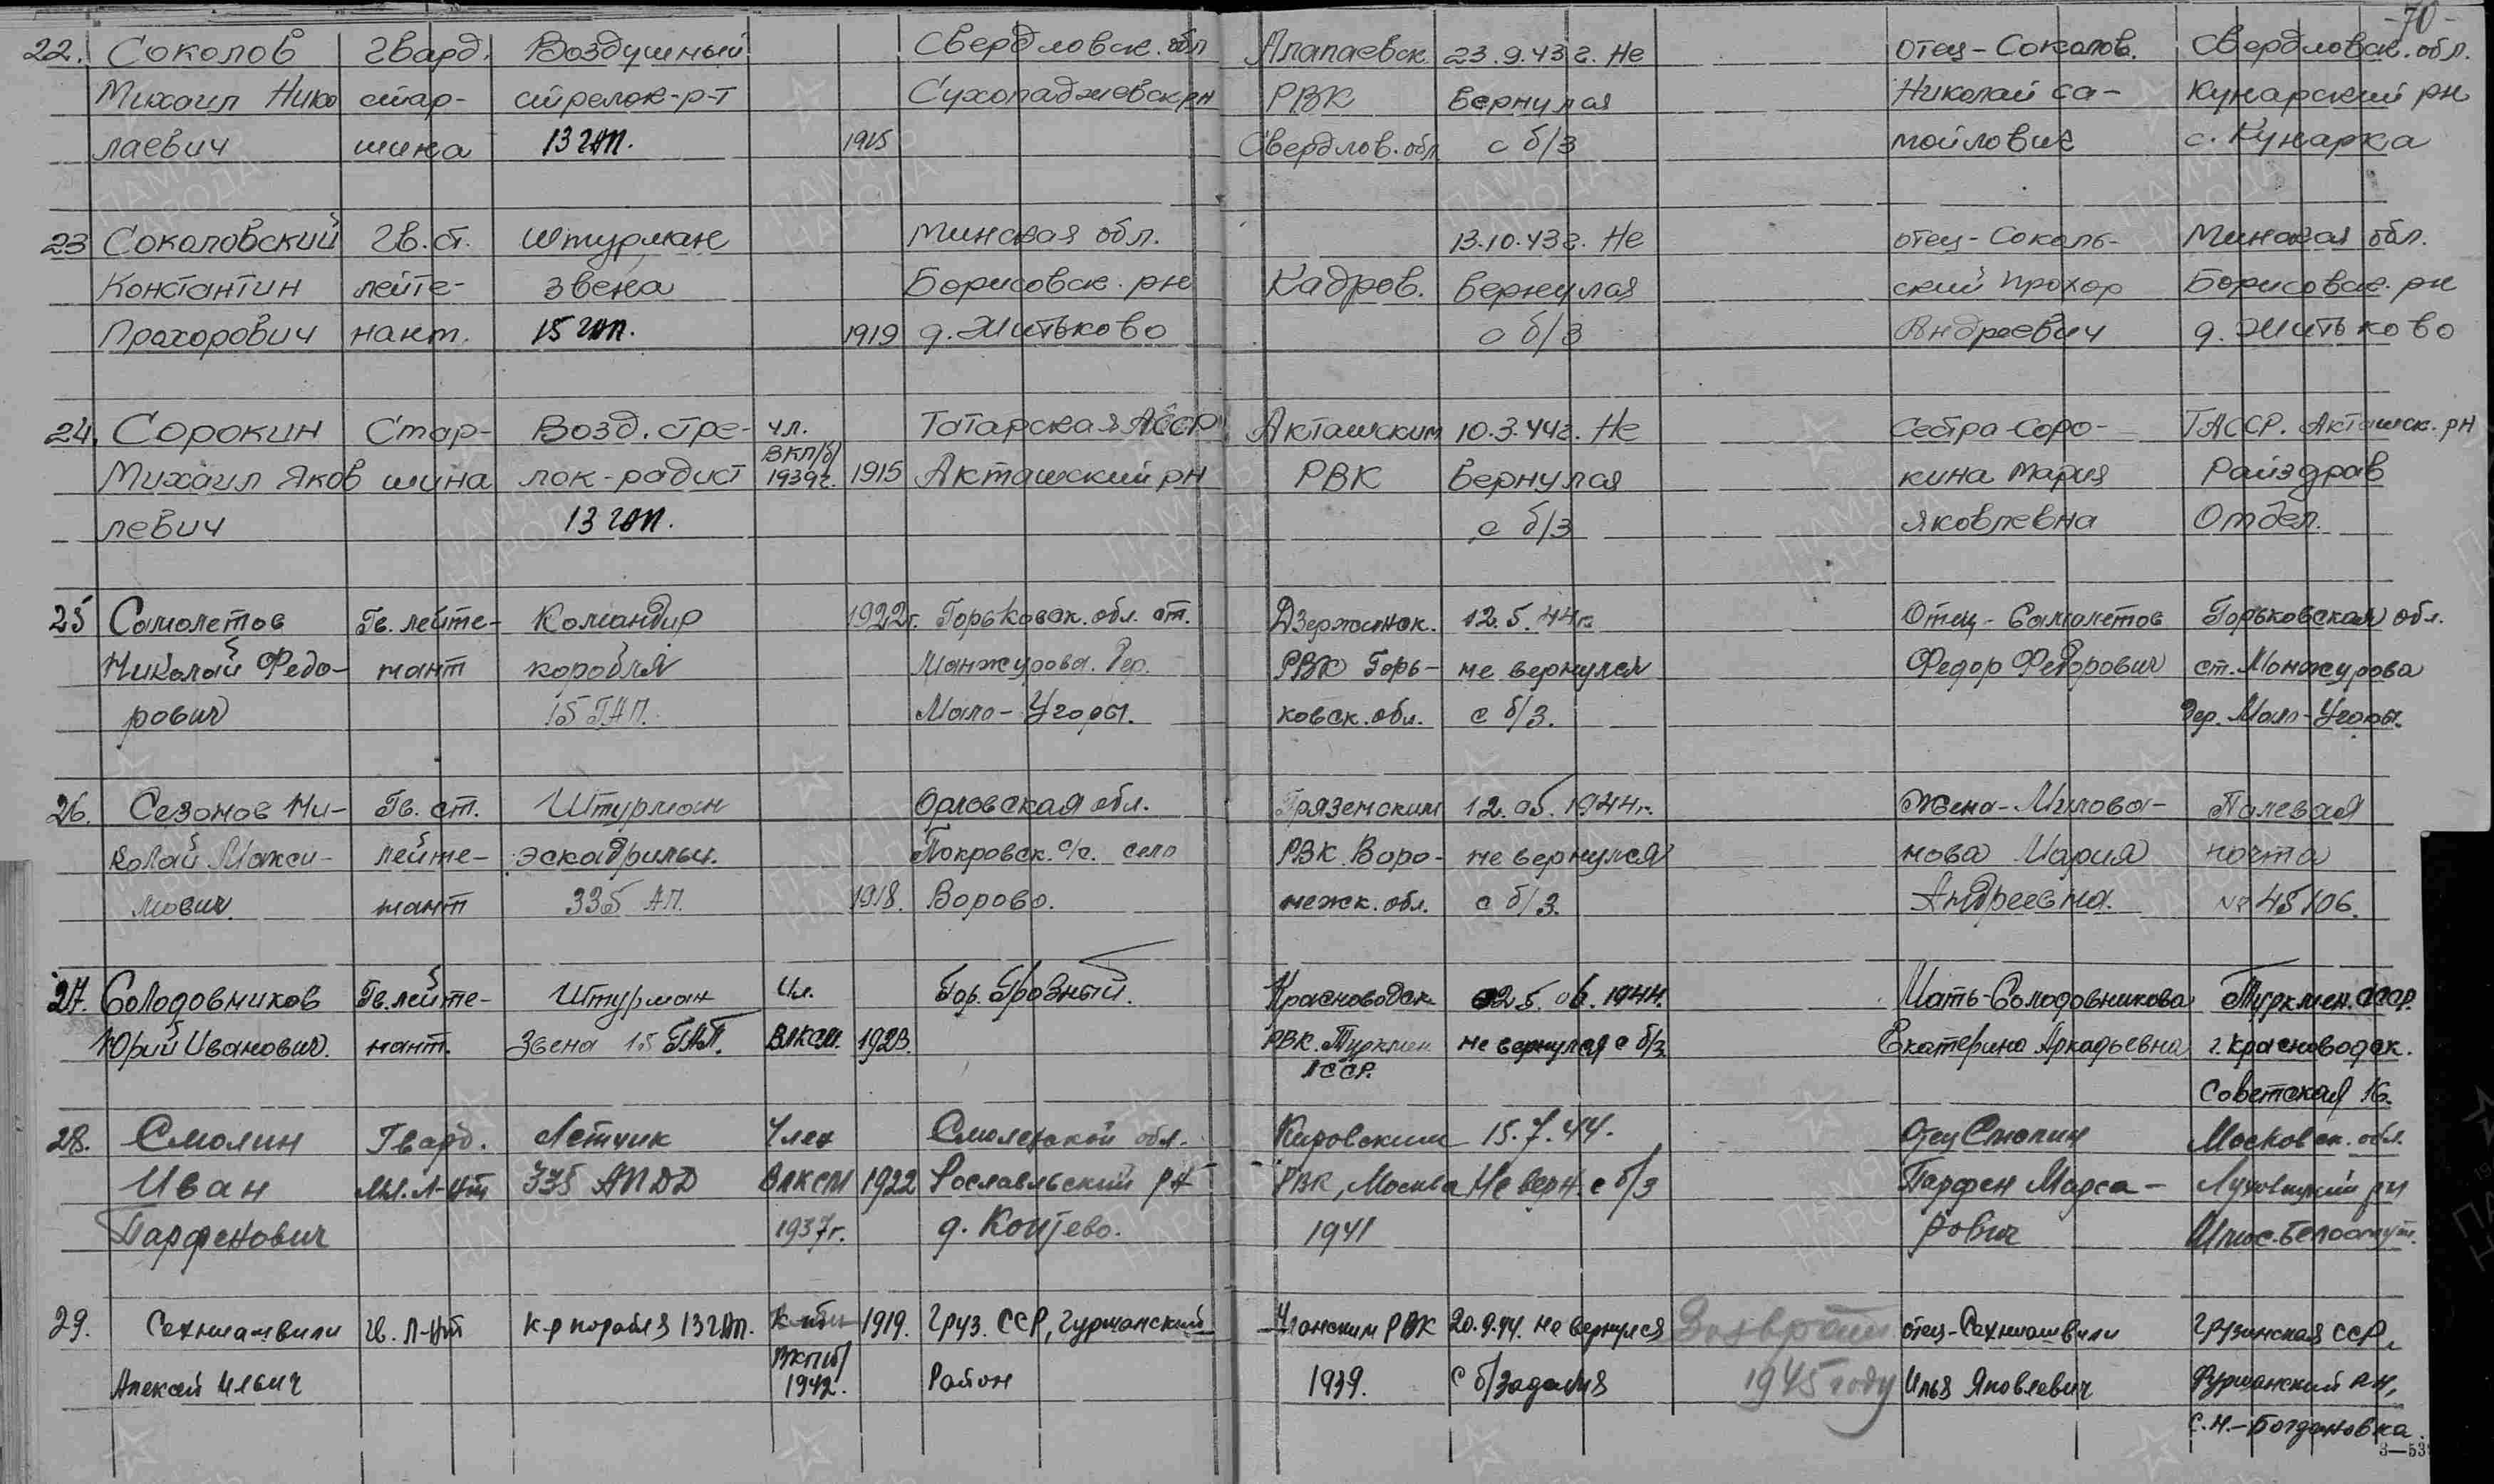 -70-
22. Соколов Гвард. Воздушный Свердловск. обл Алапаевск. 23.9.43 г. Не отец-Соколов. Свердловск. обл.
Михаил Нико стар- стрелок-р-т Сухоложевск рн РВК вернулся Николай Са- Кунарский рн
лаевич шина 13 гап. 1915 Свердлов. обл с б/з мойлович с. Кунарка
23 Соколовский Гв. ст. штурман Минская обл. 13.10.43 г. Не отец-Соколь- Минская обл.
Константин лейте- звена Борисовск. рн Кадров. вернулся ский Прохор Борисовск. рн
Прохорович нант. 15 гап. 1919 д. Житьково с б/з Андреевич д. Житьково
24. Сорокин Стар- Возд. стре- чл. Татарская АССР Акташским 10.3.44 г. Не Сестра-Соро- ТАССР. Акташск. рн
Михаил Яков шина лок-радист ВКП/б/ 1939 г. 1915 Акташский рн РВК вернулся кина Мария Райздрав
левич 13 гап. с б/з Яковлевна Отдел.
25 Самолетов Гв. лейте- Командир 1922 г. Горьковск. обл. ст. Дзержинск. 12.5.44 г. Отец-Самолетов Горьковская обл.
Николай Федо- нант корабля Манжурова. Дер. РВК Горь- не вернулся Федор Федорович ст. Манжурова
рович 15 ГАП. Мало-Угоры. ковск. обл. с б/з. Дер. Мал-Угоры.
26. Сезонов Ни- Гв. ст. Штурман Орловская обл. Грязенским 12.05.1944 г. Жена-Милова- Палевая
колай Макси- лейте- эскадрильи. Покровск. с/с. село РВК Воро- не вернулся нова Мария почта
мович. нант 335 АП. 1918. Ворово. нежск. обл. с б/з. Андреевна. № 45106.
27. Солодовников Гв. лейте- Штурман Чл. Гор. Грозный. Красноводск. 25.06.1944. Мать-Солодовникова Туркмен. ССР.
Юрий Иванович. нант. Звена 15 ГАП. ВЛКСМ. 1923. РВК. Туркмен. не вернулся с б/з. Екатерина Аркадьевна г. Красноводск.
ССР. Советская 16.
28. Смолин Гвард. Летчик Член Смоленской обл. Кировским 15.7.44. Отец Смолин Московск. обл.
Иван мл. л-нт 335 АПДД ВЛКСМ 1922 Рославльский рн РВК, Москва Не верн. с б/з Парфен Мара- Луховицкий рн
Парфенович 1937 г. д. 1941 рович
29. Сехниашвили гв. л-нт к-р корабля 13 гап. 1919. Груз. ССР, Гурджанский РВК 20.9.44. не вернулся Возвратил отец-Сехниашвили Грузинская ССР,
Алексей Ильич ВКП/б/ 1942. Район 1939. с б/задания 1945 году Илья Яковлевич рн,
С. Н.-Богдановка.